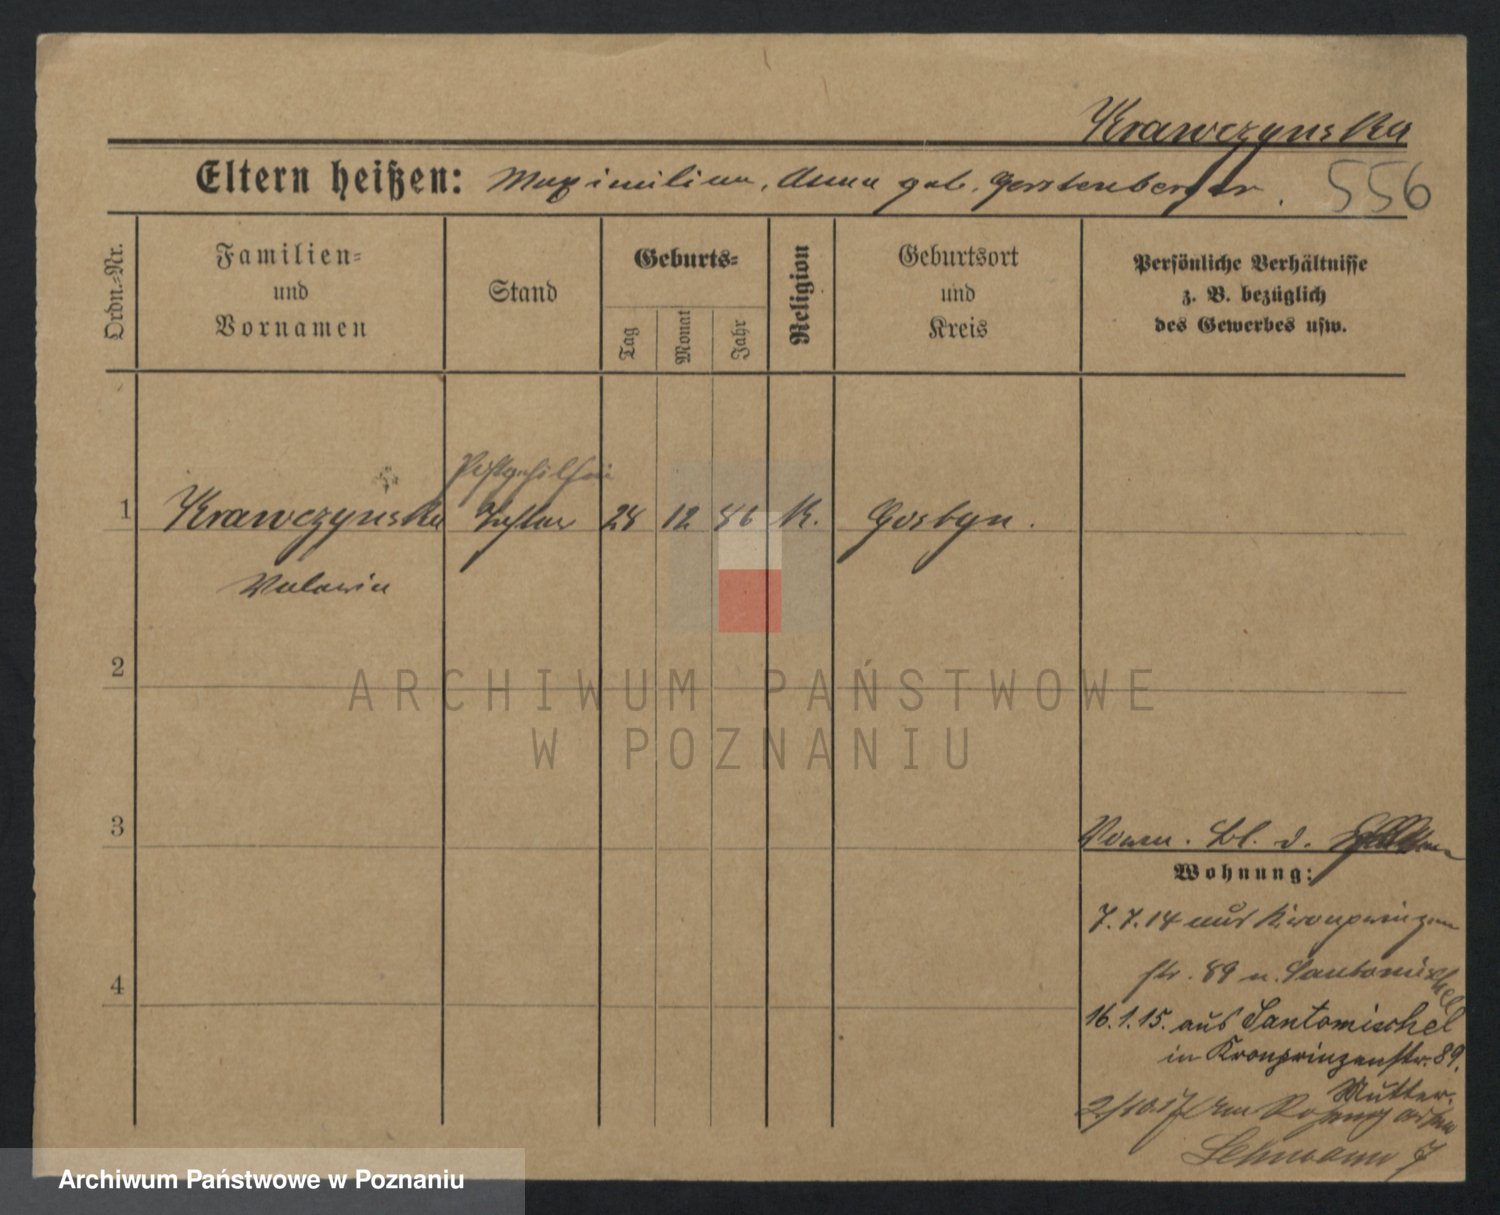 Krawczynska
Eltern heißen: Maximilian, Anna geb. Gerstenberger.
556
Ordn.=Nr.
Familien=
und
Vornamen
Stand
Geburts=
Tag
Monat
Jahr
Religion
Geburtsort
und
Kreis
Persönliche Verhältnisse
z. B. bezüglich
des Gewerbes usw.
Postgehilfin
1 Krawczynska Tochter 28 12 86 K. Gostyn.
Valeria
2
ARCHIWUM PAŃSTWOWE
W POZNANIU
3
Bl. d.
Wohnung:
7.7.14 aus Kronprinzen
str. 89 n. Santomischel
16.1.15. aus Santomischel
in Kronprinzenstr. 89.
Mutter.
4
Lehmann 7
Archiwum Państwowe w Poznaniu